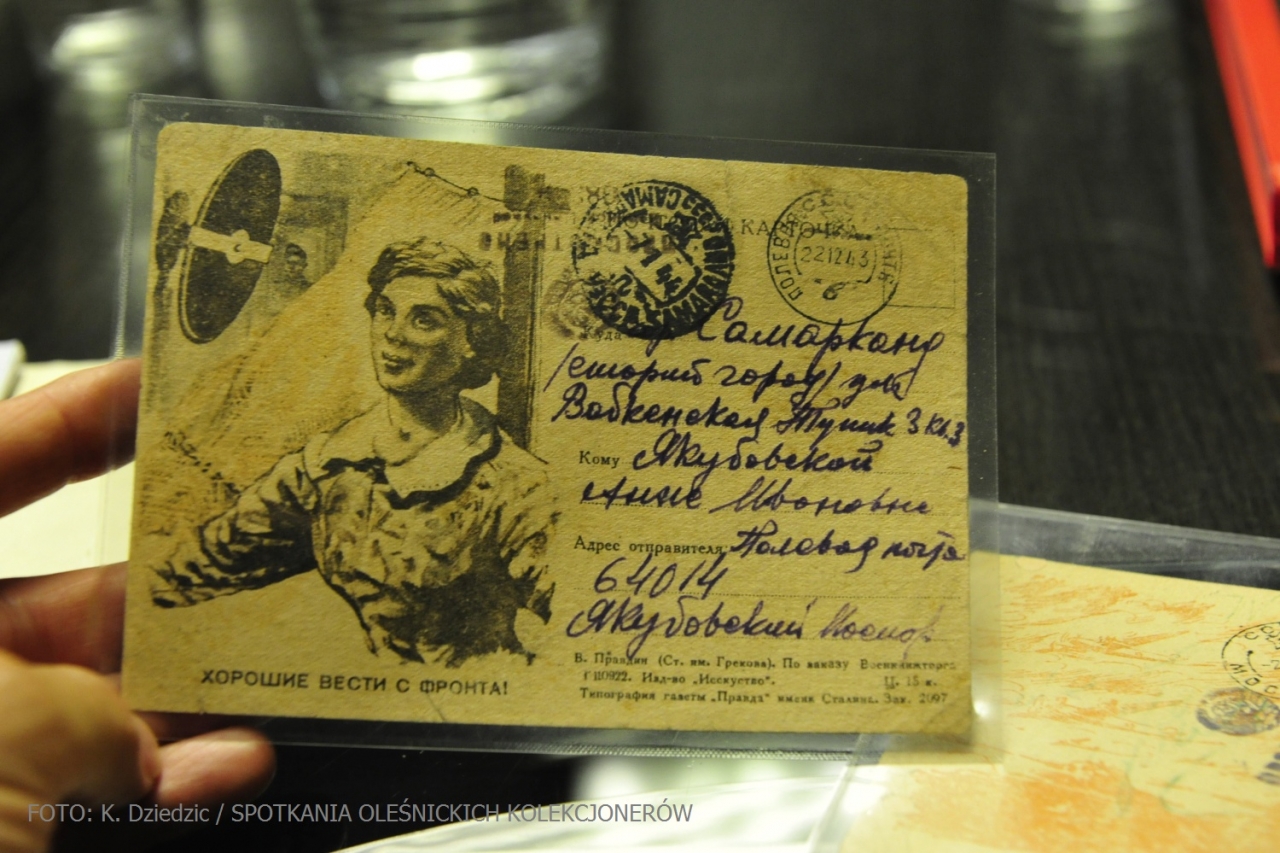 КАРТОЧКА
САМАРКАНД
ПОЛЕВАЯ
221243
6
Куда
г. Самарканд
/старый город/ ул.
Вабкенская Тупик 3 кв. 3
Кому Якубовской
Анне Ивановне
Адрес отправителя: Полевая почта
64014
Якубовский
В. Правдин (Ст. им. Грекова). По заказу Воениздата
Г110922. Изд-во „Искусство". Ц. 15 к.
Типография газеты „Правда" имени Сталина. Зак. 2097
ХОРОШИЕ ВЕСТИ С ФРОНТА!
FOTO: K. Dziedzic / SPOTKANIA OLEŚNICKICH KOLEKCJONERÓW